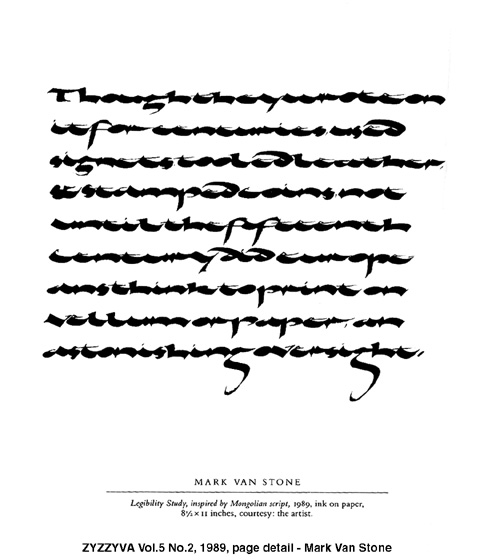 Though they wrote on
it for centuries, used
signets tooled leather,
& stamped coins, not
until the fifteenth
century did europe
ans think to print on
vellum or paper, an
astonishing oversight.
MARK VAN STONE
Legibility Study, inspired by Mongolian script, 1989, ink on paper,
8½ × 11 inches, courtesy: the artist.
ZYZZYVA Vol.5 No.2, 1989, page detail - Mark Van Stone